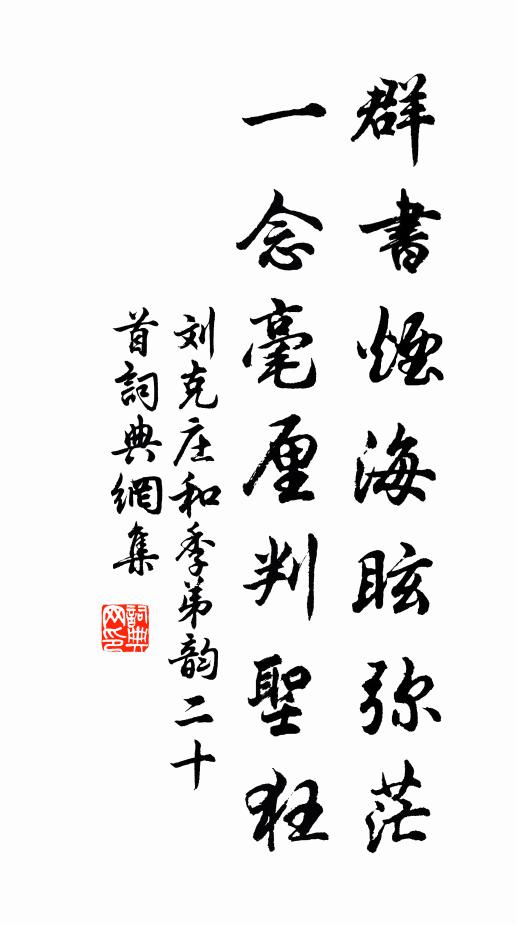 群書煙海眩弥茫
一念毫厘判聖狂
刘克庄和季弟韵二十
首詞典網集
詞典網印